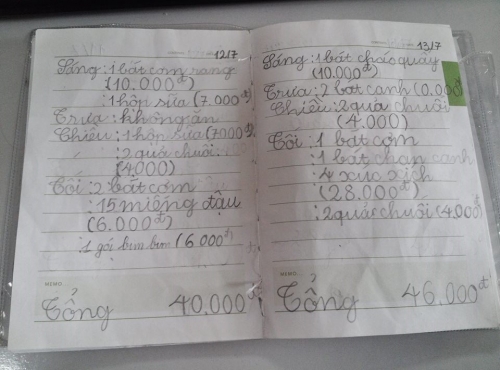 12/7
Sáng: 1 bát cơm rang
(10.000đ)
: 1 hộp sữa (7.000đ)
Trưa: không ăn
Chiều: 1 hộp sữa (7000đ)
: 2 quả chuối
(4.000)
Tối: 2 bát cơm
: 15 miếng đậu
(6.000đ)
: 1 gói bim bim (6.000đ)
MEMO
Tổng 40.000đ
13/7
Sáng: 1 bát cháo quẩy
(10.000đ)
Trưa: 2 bát canh (0.000đ)
Chiều: 2 quả chuối
(4.000)
Tối: 1 bát cơm
1 bát chan canh
4 xúc xích
(28.000đ)
: 2 quả chuối (4.000đ)
MEMO
Tổng 46.000đ